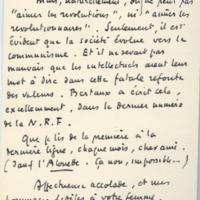 naturellement, on ne peut pas
"aimer les révolutions", ni "aimer les
révolutionnaires". Seulement, il est
évident que la société évolue vers le
communisme. Et il ne serait pas
mauvais que les intellectuels aient leur
mot à dire dans cette fatale refonte
des valeurs. Bertaux a écrit cela,
excellemment, dans le dernier numéro
de la N.R.F.
Que je lis de la première à la
dernière ligne, chaque mois, cher ami.
(Sauf l'Alouette. Ça non, impossible...)
Affectueuse accolade, et mes
hommages fidèles à votre femme.